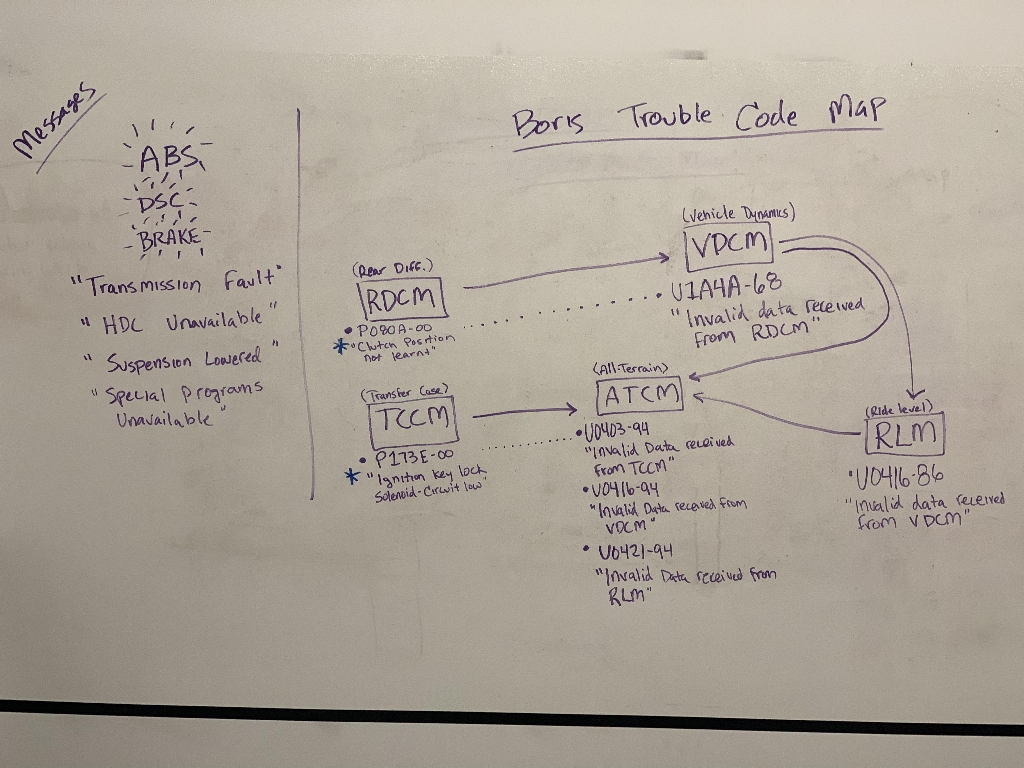 Messages
ABS
DSC
BRAKE
"Transmission Fault"
"HDC Unavailable"
"Suspension Lowered"
"Special Programs
Unavailable"
Boris Trouble Code Map
(Rear Diff.)
RDCM
• P080A-00
* "Clutch Position
not learnt"
(Transfer Case)
TCCM
• P173E-00
* "Ignition key lock
Solenoid-Circuit low"
(Vehicle Dynamics)
VDCM
• U1A4A-68
"Invalid data received
from RDCM"
(All-Terrain)
ATCM
• U0403-94
"Invalid Data received
from TCCM"
• U0416-94
"Invalid Data received from
VDCM"
• U0421-94
"Invalid Data received from
RLM"
(Ride level)
RLM
• U0416-86
"Invalid data received
from VDCM"